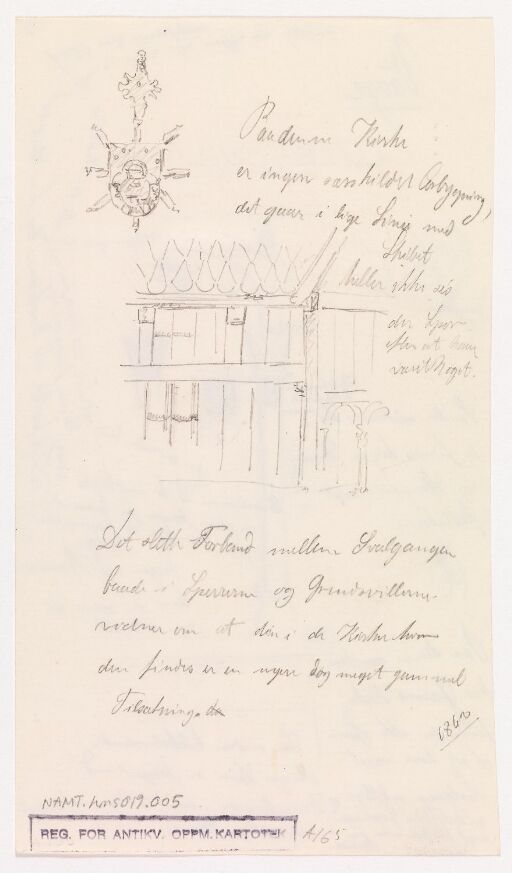 Kirke
er ingen særskildt Ombygning,
det gaar i lige Linie med
Skibet
heller ikke sés
der Spor
efter at have
været Noget.
Det slette Forband mellem Svalgangen
baade i Sperrerne og Grundsvillerne
vidner om at den i de Kirker hvor
den findes er en nyere dog meget gammel
Tilsætning.
1842
NAMT.hns019.005
REG. FOR ANTIKV. OPPM. KARTOTEK A/65